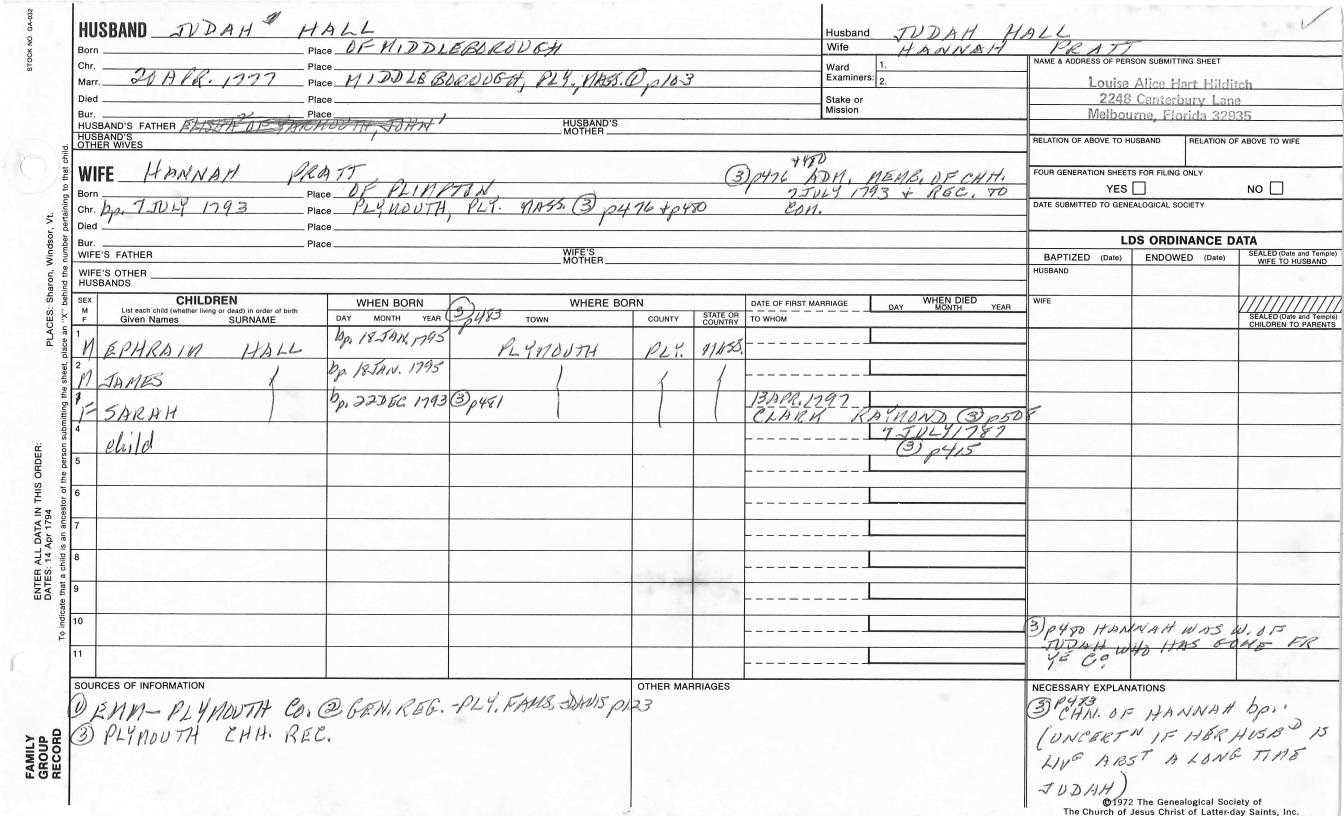 STOCK NO. GA-032
PLACES: Sharon, Windsor, Vt.
ENTER ALL DATA IN THIS ORDER:
DATES: 14 Apr 1794
To indicate that a child is an ancestor of the person submitting the sheet, place an "X" behind the number pertaining to that child.
FAMILY
GROUP
RECORD
HUSBAND JUDAH HALL
Born Place OF MIDDLEBOROUGH
Chr. Place
Marr. 20 APR. 1777 Place MIDDLEBOROUGH, PLY, MASS. ① p163
Died Place
Bur. Place
HUSBAND'S FATHER ELISHA² OF YARMOUTH, JOHN¹ HUSBAND'S MOTHER
HUSBAND'S OTHER WIVES
WIFE HANNAH PRATT
Born Place OF PLIMPTON
Chr. bp. 7 JULY 1793 Place PLYMOUTH, PLY. MASS. ③ p476 + p480
Died Place
Bur. Place
+480
③ p476 ADM. MEMB. OF CHH.
7 JULY 1793 & REC. TO
COM.
WIFE'S FATHER WIFE'S MOTHER
WIFE'S OTHER HUSBANDS
Husband JUDAH HALL
Wife HANNAH PRATT
Ward Examiners: 1.
2.
Stake or Mission
NAME & ADDRESS OF PERSON SUBMITTING SHEET
Louise Alice Hart Hilditch
2248 Canterbury Lane
Melbourne, Florida 32935
RELATION OF ABOVE TO HUSBAND RELATION OF ABOVE TO WIFE
FOUR GENERATION SHEETS FOR FILING ONLY
YES NO
DATE SUBMITTED TO GENEALOGICAL SOCIETY
LDS ORDINANCE DATA
BAPTIZED (Date) ENDOWED (Date) SEALED (Date and Temple) WIFE TO HUSBAND
HUSBAND
WIFE
SEALED (Date and Temple) CHILDREN TO PARENTS
SEX M F
CHILDREN
List each child (whether living or dead) in order of birth
Given Names SURNAME
WHEN BORN
DAY MONTH YEAR
③ p483
WHERE BORN
TOWN COUNTY STATE OR COUNTRY
DATE OF FIRST MARRIAGE
TO WHOM
WHEN DIED
DAY MONTH YEAR
1 M EPHRAIM HALL bp. 18 JAN. 1795 PLYMOUTH PLY. MASS.
2 M JAMES bp. 18 JAN. 1795
F SARAH bp. 22 DEC 1793 ③ p481 13 APR. 1797
CLARK RAYMOND ③ p508
4 child 7 JULY 1787
③ p415
5
6
7
8
9
10
11
③ p480 HANNAH WAS W. OF
JUDAH WHO HAS GONE FR
Yᴱ Cᵒ
SOURCES OF INFORMATION
① EMM- PLYMOUTH CO. ② GEN. REG. -PLY. FAMS. -DAVIS p123
③ PLYMOUTH CHH. REC.
OTHER MARRIAGES
NECESSARY EXPLANATIONS
③ p483
CHN. OF HANNAH bp.
(UNCERTᴺ IF HER HUSBᴰ IS
LIVᴳ ABSᵀ A LONG TIME
JUDAH)
©1972 The Genealogical Society of
The Church of Jesus Christ of Latter-day Saints, Inc.